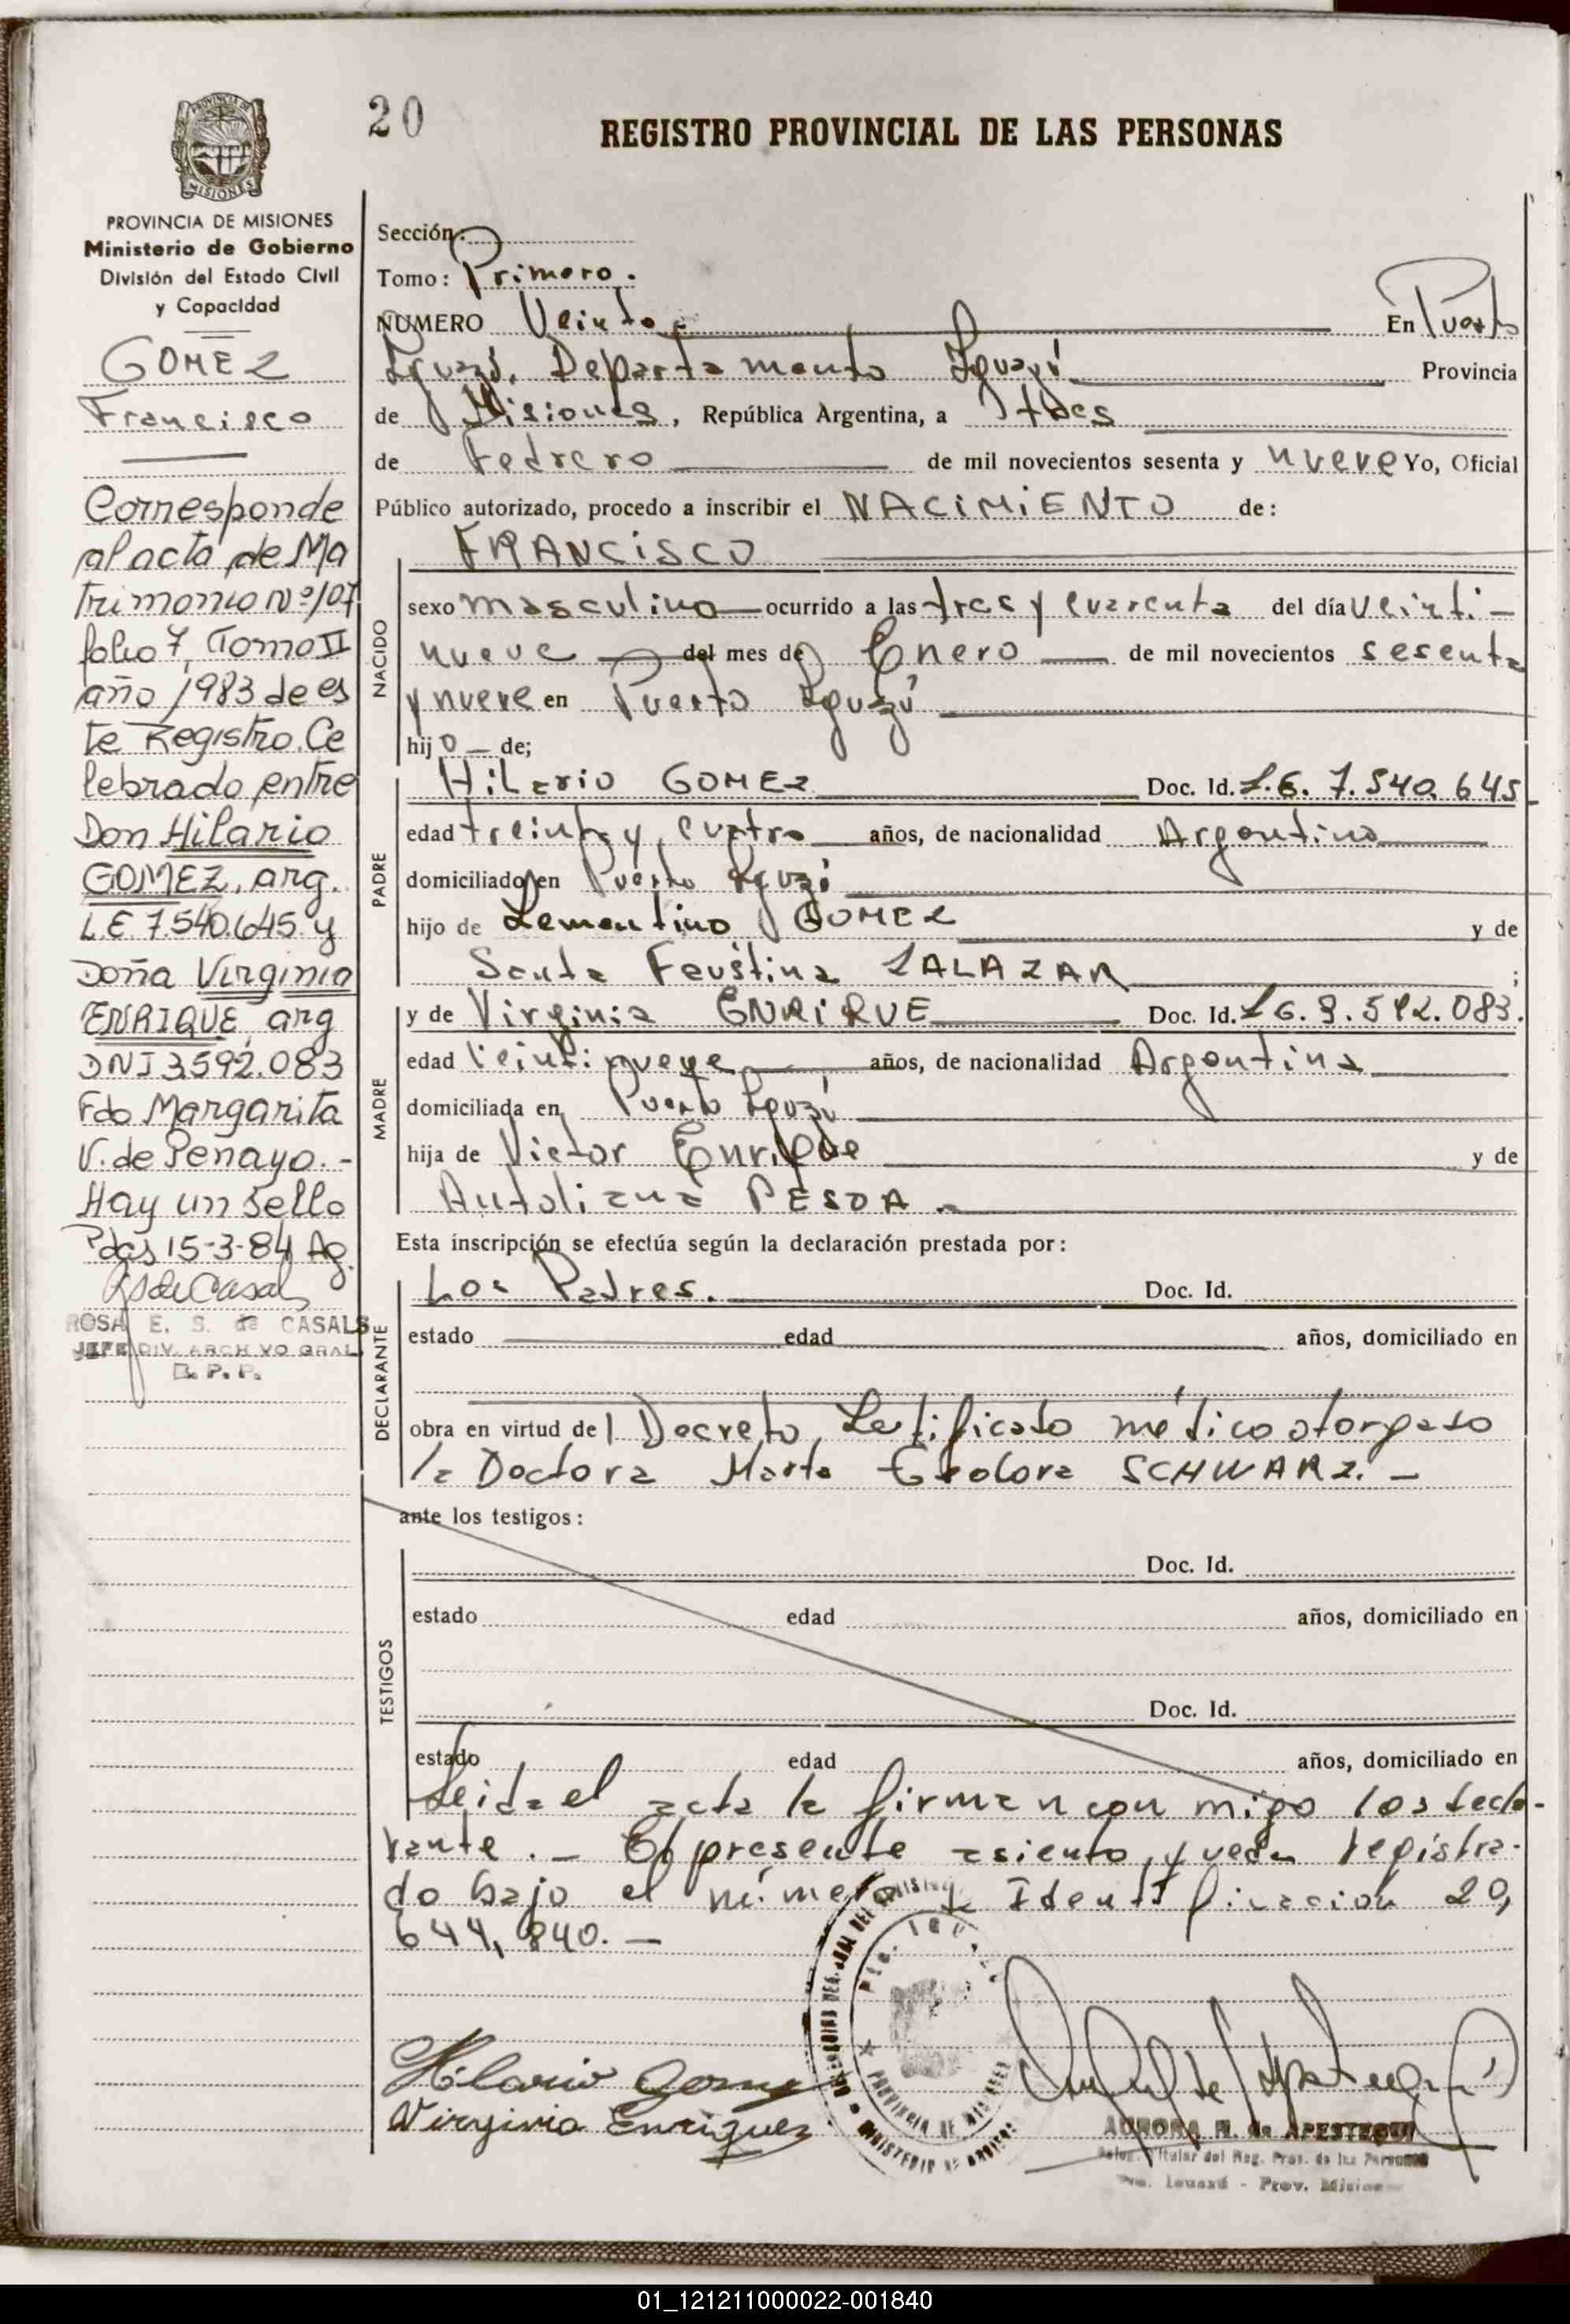 20
REGISTRO PROVINCIAL DE LAS PERSONAS
PROVINCIA DE
MISIONES
PROVINCIA DE MISIONES
Ministerio de Gobierno
División del Estado Civil
y Capacidad
GOMEZ
Francisco
Corresponde
al acta de Ma
trimonio Nº 107
folio 7, Tomo II
año 1983 de es
te Registro. Ce
lebrado entre
Don Hilario
GOMEZ, arg.
L.E 7.540.645 y
Doña Virginia
ENRIQUE, arg
DNI 3.592.083
Fdo Margarita
V. de Penayo. -
Hay un sello
Pdas 15-3-84 Ag.
ROSA E. S. de CASALS
JEFE DIV. ARCHIVO GRAL.
R. P. P.
Sección:
Tomo: Primero.
NUMERO Veinte.- En Puerto
Iguazú, Departamento Iguazú Provincia
de Misiones, República Argentina, a tres
de Febrero de mil novecientos sesenta y nueve Yo, Oficial
Público autorizado, procedo a inscribir el NACIMIENTO de:
NACIDO
FRANCISCO
sexo masculino ocurrido a las tres y cuarenta del día veinti-
nueve del mes de Enero de mil novecientos sesenta
y nueve en Puerto Iguazú
hijo de;
PADRE
Hilario GOMEZ Doc. Id. L.E. 7.540.645
edad treinta y cuatro años, de nacionalidad Argentina
domiciliado en Puerto Iguazú
hijo de Lementino GOMEZ y de
Santa Faustina SALAZAR ;
MADRE
y de Virginia ENRIQUE Doc. Id. L.E. 3.592.083.
edad Veintinueve años, de nacionalidad Argentina
domiciliada en Puerto Iguazú
hija de Victor Enrique y de
Autoliana PESOA.-
Esta inscripción se efectúa según la declaración prestada por:
DECLARANTE
Los Padres. Doc. Id.
estado edad años, domiciliado en
obra en virtud de l Decreto, Certificado médico otorgado
la Doctora Marta Teodora SCHWARZ. -
ante los testigos:
TESTIGOS
Doc. Id.
estado edad años, domiciliado en
Doc. Id.
estado edad años, domiciliado en
Leida el acta la firman con migo los decla-
rante. - El presente asiento, queda registra-
do bajo el número de Identificación 20,
644,840. -
Hilario Gomez
Virginia Enriquez
PROVINCIA DE MISIONES
AURORA R. de APESTEGUI
Deleg. Titular del Reg. Prov. de las Personas
Pto. Iguazú - Prov. Misiones
01_121211000022-001840